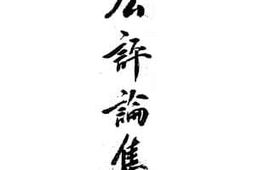 公評論集